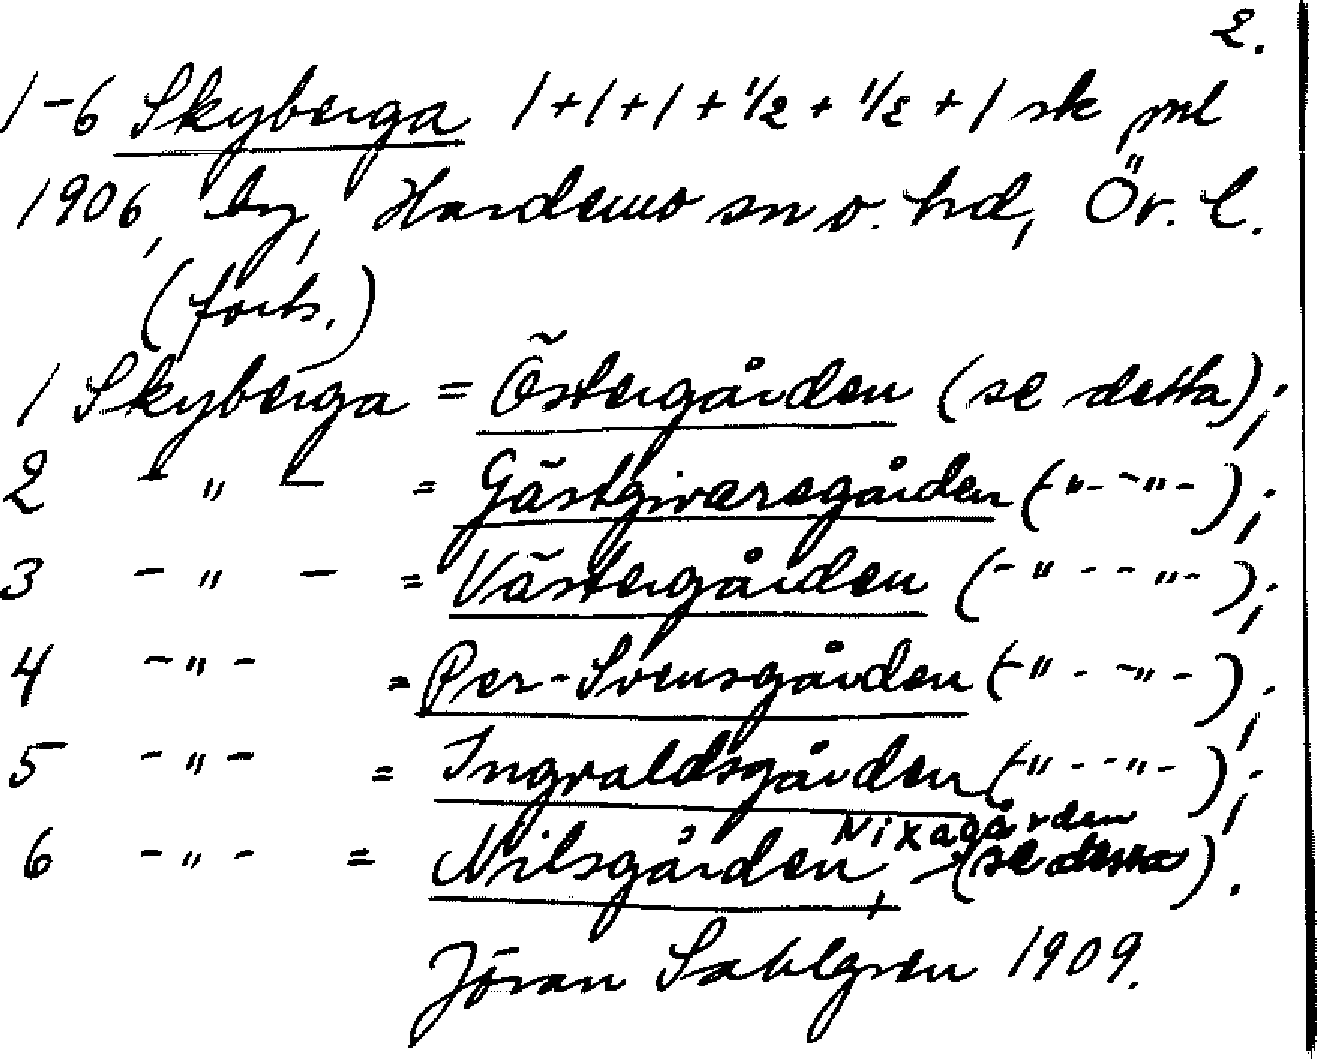 2.
1-6 Skyberga 1+1+1+1/2+1/2+1 sk jml
1906, by, Hardemo sn o. hd, Ör. l.
(forts.)
1 Skyberga = Östergården (se detta);
2 -"- = Gästgivaregården (-"- -"-);
3 -"- = Västergården (-"- -"-);
4 -"- = Per-Svensgården (-"- -"-);
5 -"- = Ingvaldsgården (-"- -"-);
Nixagården
6 -"- = Nilsgården, (se dessa).
Jöran Sahlgren 1909.